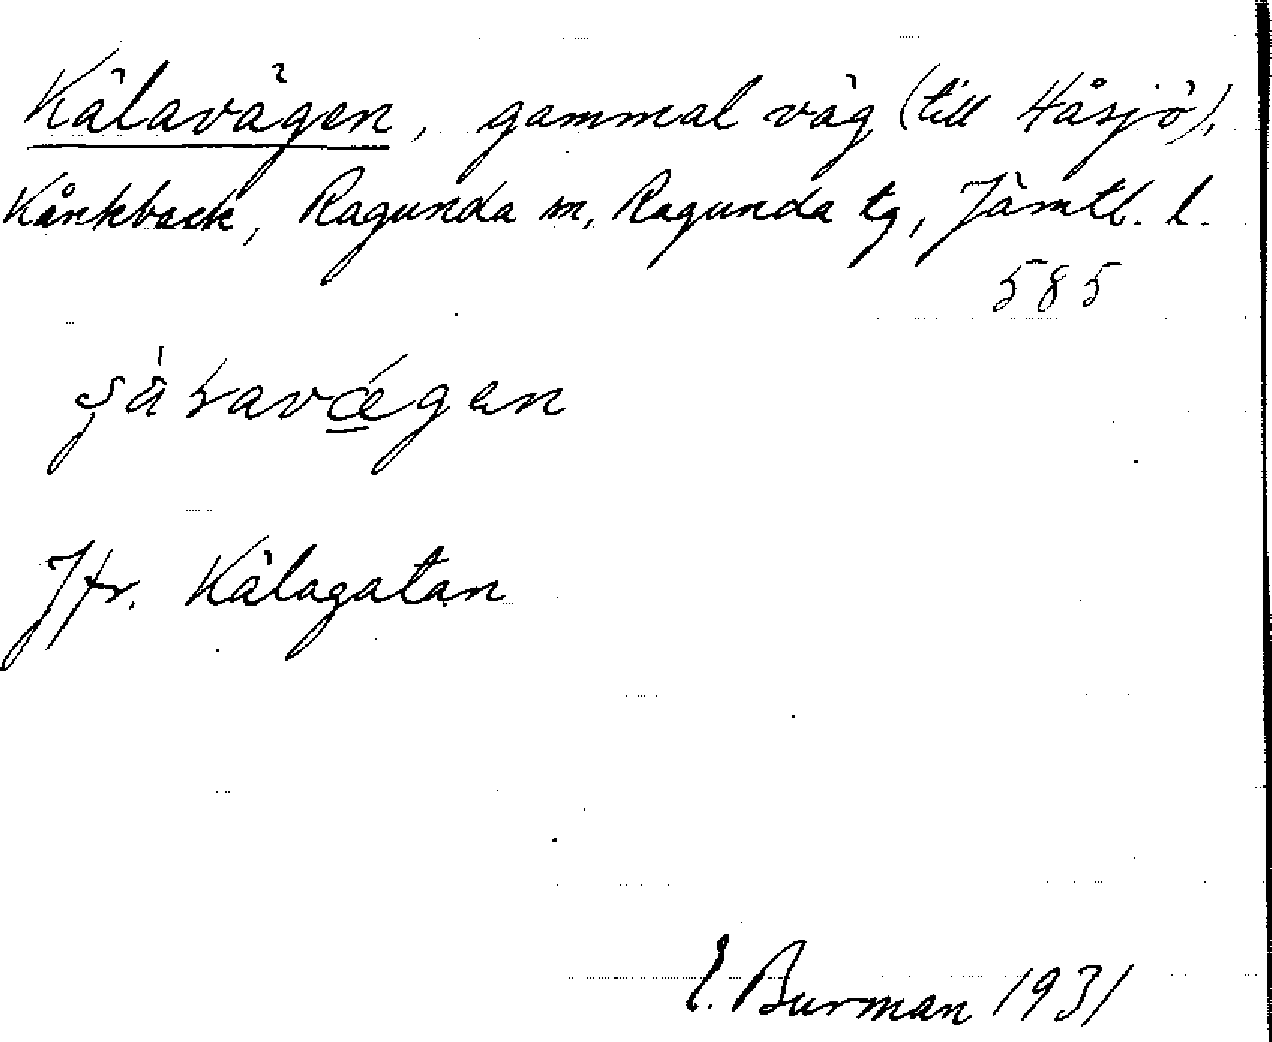 Kälavägen, gammal väg (till Håsjö),
Kånkback, Ragunda sn, Ragunda tg, Jämtl. l.
585
Jfr. Kälagatan
E. Burman 1931